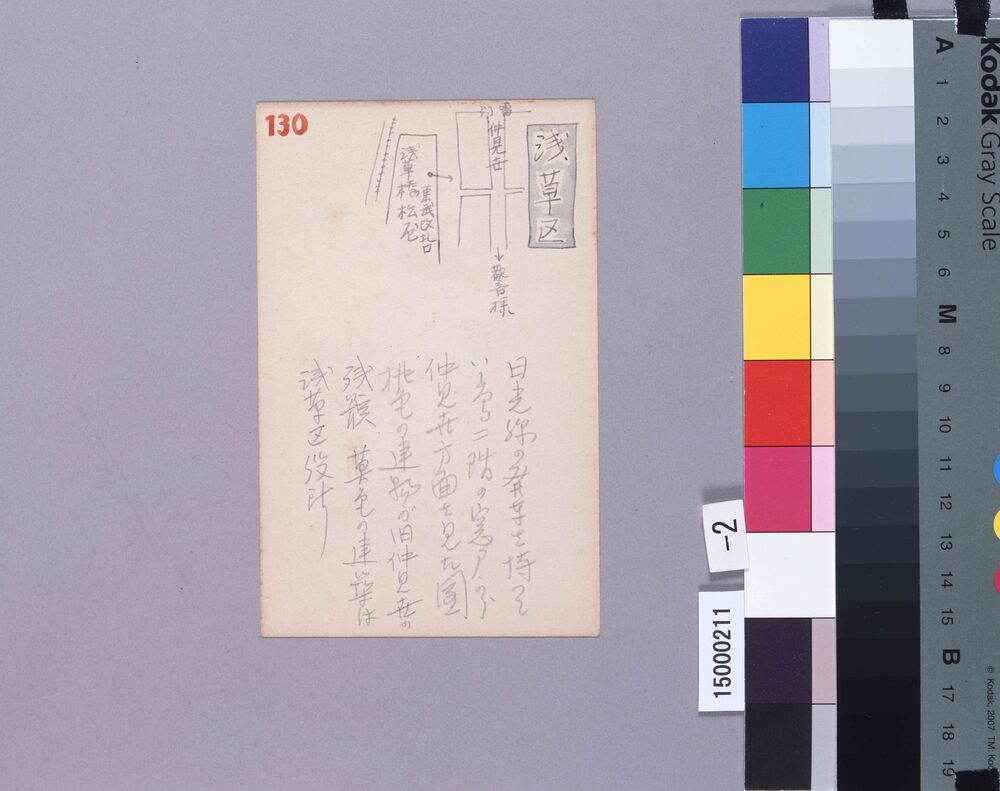 130
浅草区
雷門
仲見世
↓観音様
東武改札口
浅草
松屋
日光線の発車を待つて
いる間二階の窓から
仲見世方面を見た図
桃色の建物が旧仲見世の
残骸 黄色の建築は
浅草区役所
-2
15000211
Kodak Gray Scale
A 1 2 3 4 5 6 M 8 9 10 11 12 13 14 15 B 17 18 19
© Kodak, 2007 TM: Kod